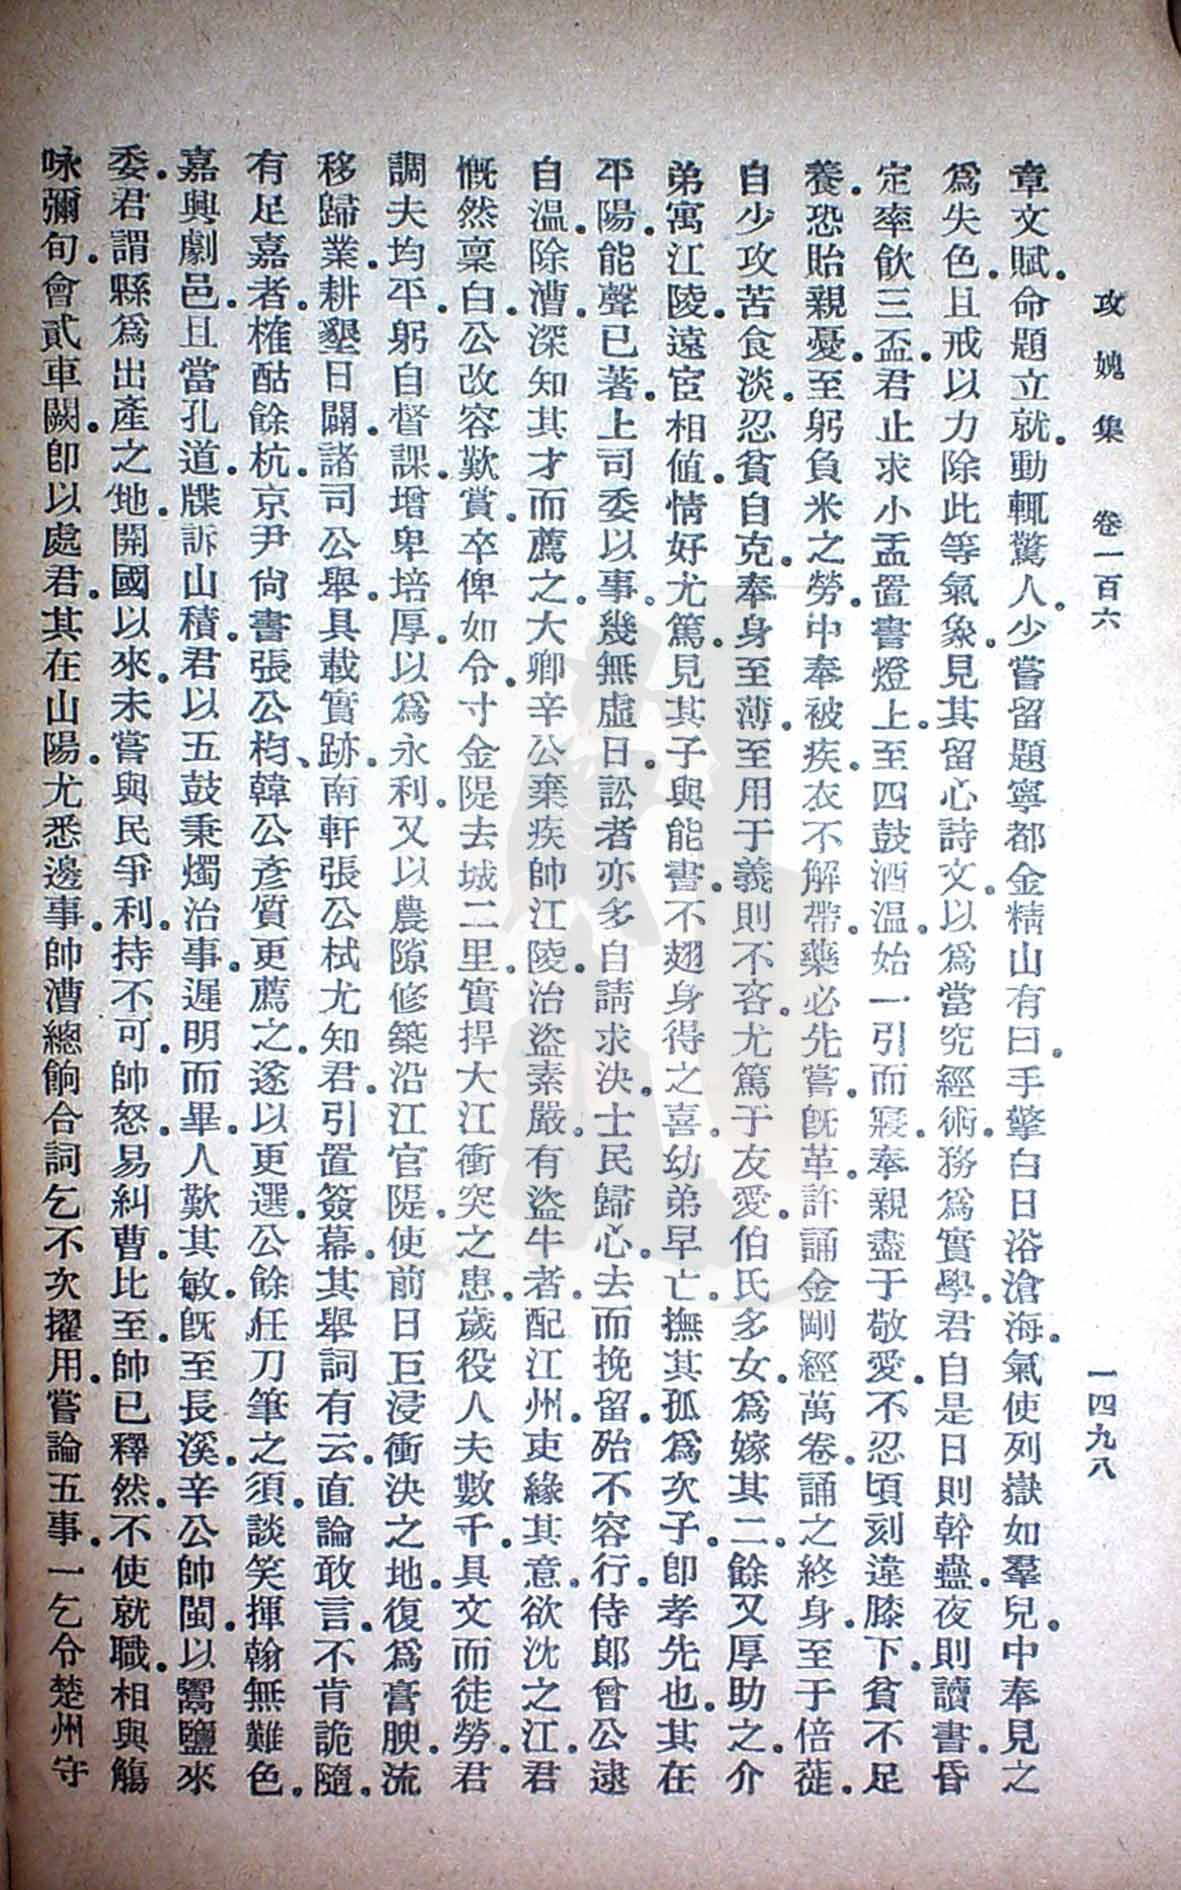 攻媿集　卷一百六　一四九八
章文賦。命題立就。動輒驚人。少嘗留題寧都金精山有曰。手擎白日浴滄海。氣使列嶽如羣兒。中奉見之
爲失色。且戒以力除此等氣象。見其留心詩文。以爲當究經術。務爲實學。君自是日則幹蠱。夜則讀書。昏
定率飲三盃。君止求小盂置書燈上。至四鼓酒温。始一引而寢。奉親盡于敬愛。不忍頃刻違膝下。貧不足
養。恐貽親憂。至躬負米之勞。中奉被疾。衣不解帶。藥必先嘗。旣革。許誦金剛經萬卷。誦之終身。至于倍蓰。
自少攻苦食淡。忍貧自克。奉身至薄。至用于義則不吝。尤篤于友愛。伯氏多女。爲嫁其二。餘又厚助之。介
弟寓江陵。遠宦相値。情好尤篤。見其子與能書。不翅身得之喜。幼弟早亡。撫其孤爲次子。卽孝先也。其在
平陽。能聲已著。上司委以事。幾無虛日。訟者亦多自請求決。士民歸心。去而挽留。殆不容行。侍郞曾公逮
自温。除漕。深知其才而薦之。大卿辛公棄疾帥江陵。治盜素嚴。有盜牛者。配江州。吏緣其意。欲沈之江。君
慨然稟白。公改容歎賞。卒俾如令。寸金隄去城二里。實捍大江衝突之患。歲役人夫數千。具文而徒勞。君
調夫均平。躬自督課。增卑培厚。以爲永利。又以農隙修築沿江官隄。使前日巨浸衝決之地。復爲膏腴。流
移歸業。耕墾日闢。諸司公舉。具載實跡。南軒張公栻尤知君。引置簽幕。其舉詞有云。直論敢言。不肯詭隨。
有足嘉者。榷酤餘杭。京尹尙書張公枃、韓公彥質更薦之。遂以更選。公餘任刀筆之須。談笑揮翰無難色。
嘉興劇邑。且當孔道。牒訴山積。君以五鼓秉燭治事。遲明而畢。人歎其敏。旣至長溪。辛公帥閩。以鬻鹽來
委。君謂縣爲出產之地。開國以來。未嘗與民爭利。持不可。帥怒。易糾曹。比至。帥已釋然。不使就職。相與觴
咏彌旬。會貳車闕。卽以處君。其在山陽。尤悉邊事。帥漕總餉合詞乞不次擢用。嘗論五事。一乞令楚州守